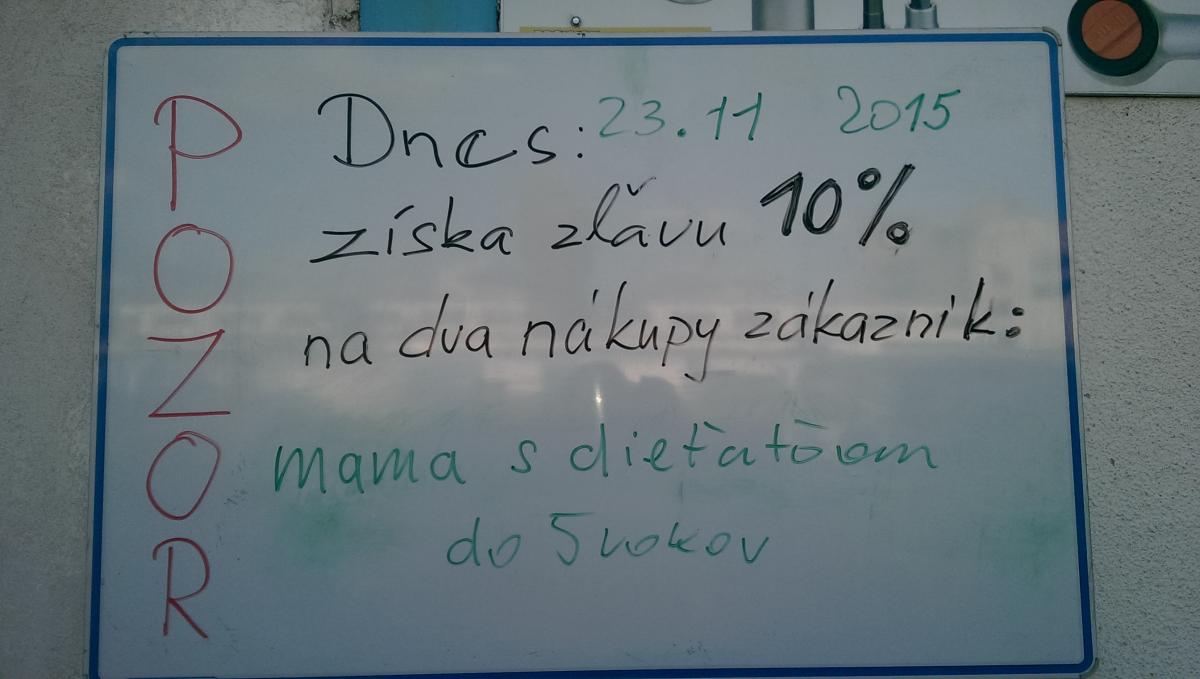 POZOR
Dnes: 23.11 2015
získa zľavu 10%
na dva nákupy zákazník:
mama s dieťaťom
do 5 rokov